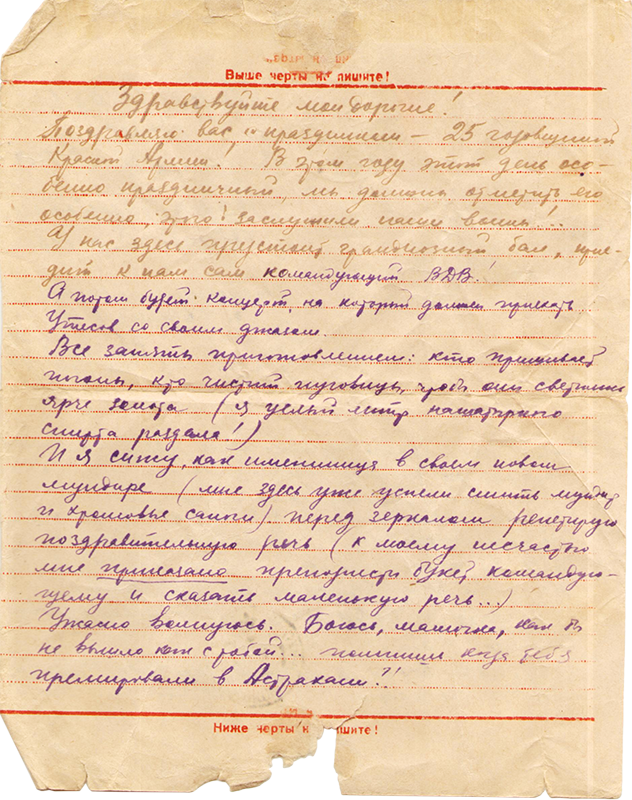 Выше черты не пишите!
Здравствуйте мои дорогие!
Поздравляю вас с праздником — 25 годовщиной
Красной Армии! В этом году этот день осо-
бенно праздничный, мы должны отметить его
особенно, этого заслужили наши воины!..
У нас здесь предстоит грандиозный бал, прие-
дит к нам сам командующий ВДВ.
А потом будет концерт, на который должен приехать
Утесов со своим джазом.
Все заняты приготовлением: кто пришивает
погоны, кто чистит пуговицы, чтобы они светились
ярче золота (я целый литр нашатырного
спирта раздала!)
И я сижу, как именинница в своем новом
мундире (мне здесь уже успели сшить мундир
и хромовые сапоги) перед зеркалом репетирую
поздравительную речь (к моему несчастью
мне приказано преподнести букет командую-
щему и сказать маленькую речь..)
Ужасно волнуюсь. Боюсь, мамочка, как бы
не вышло как с тобой... помнишь когда тебя
премировали в Астрахани?!
Ниже черты не пишите!